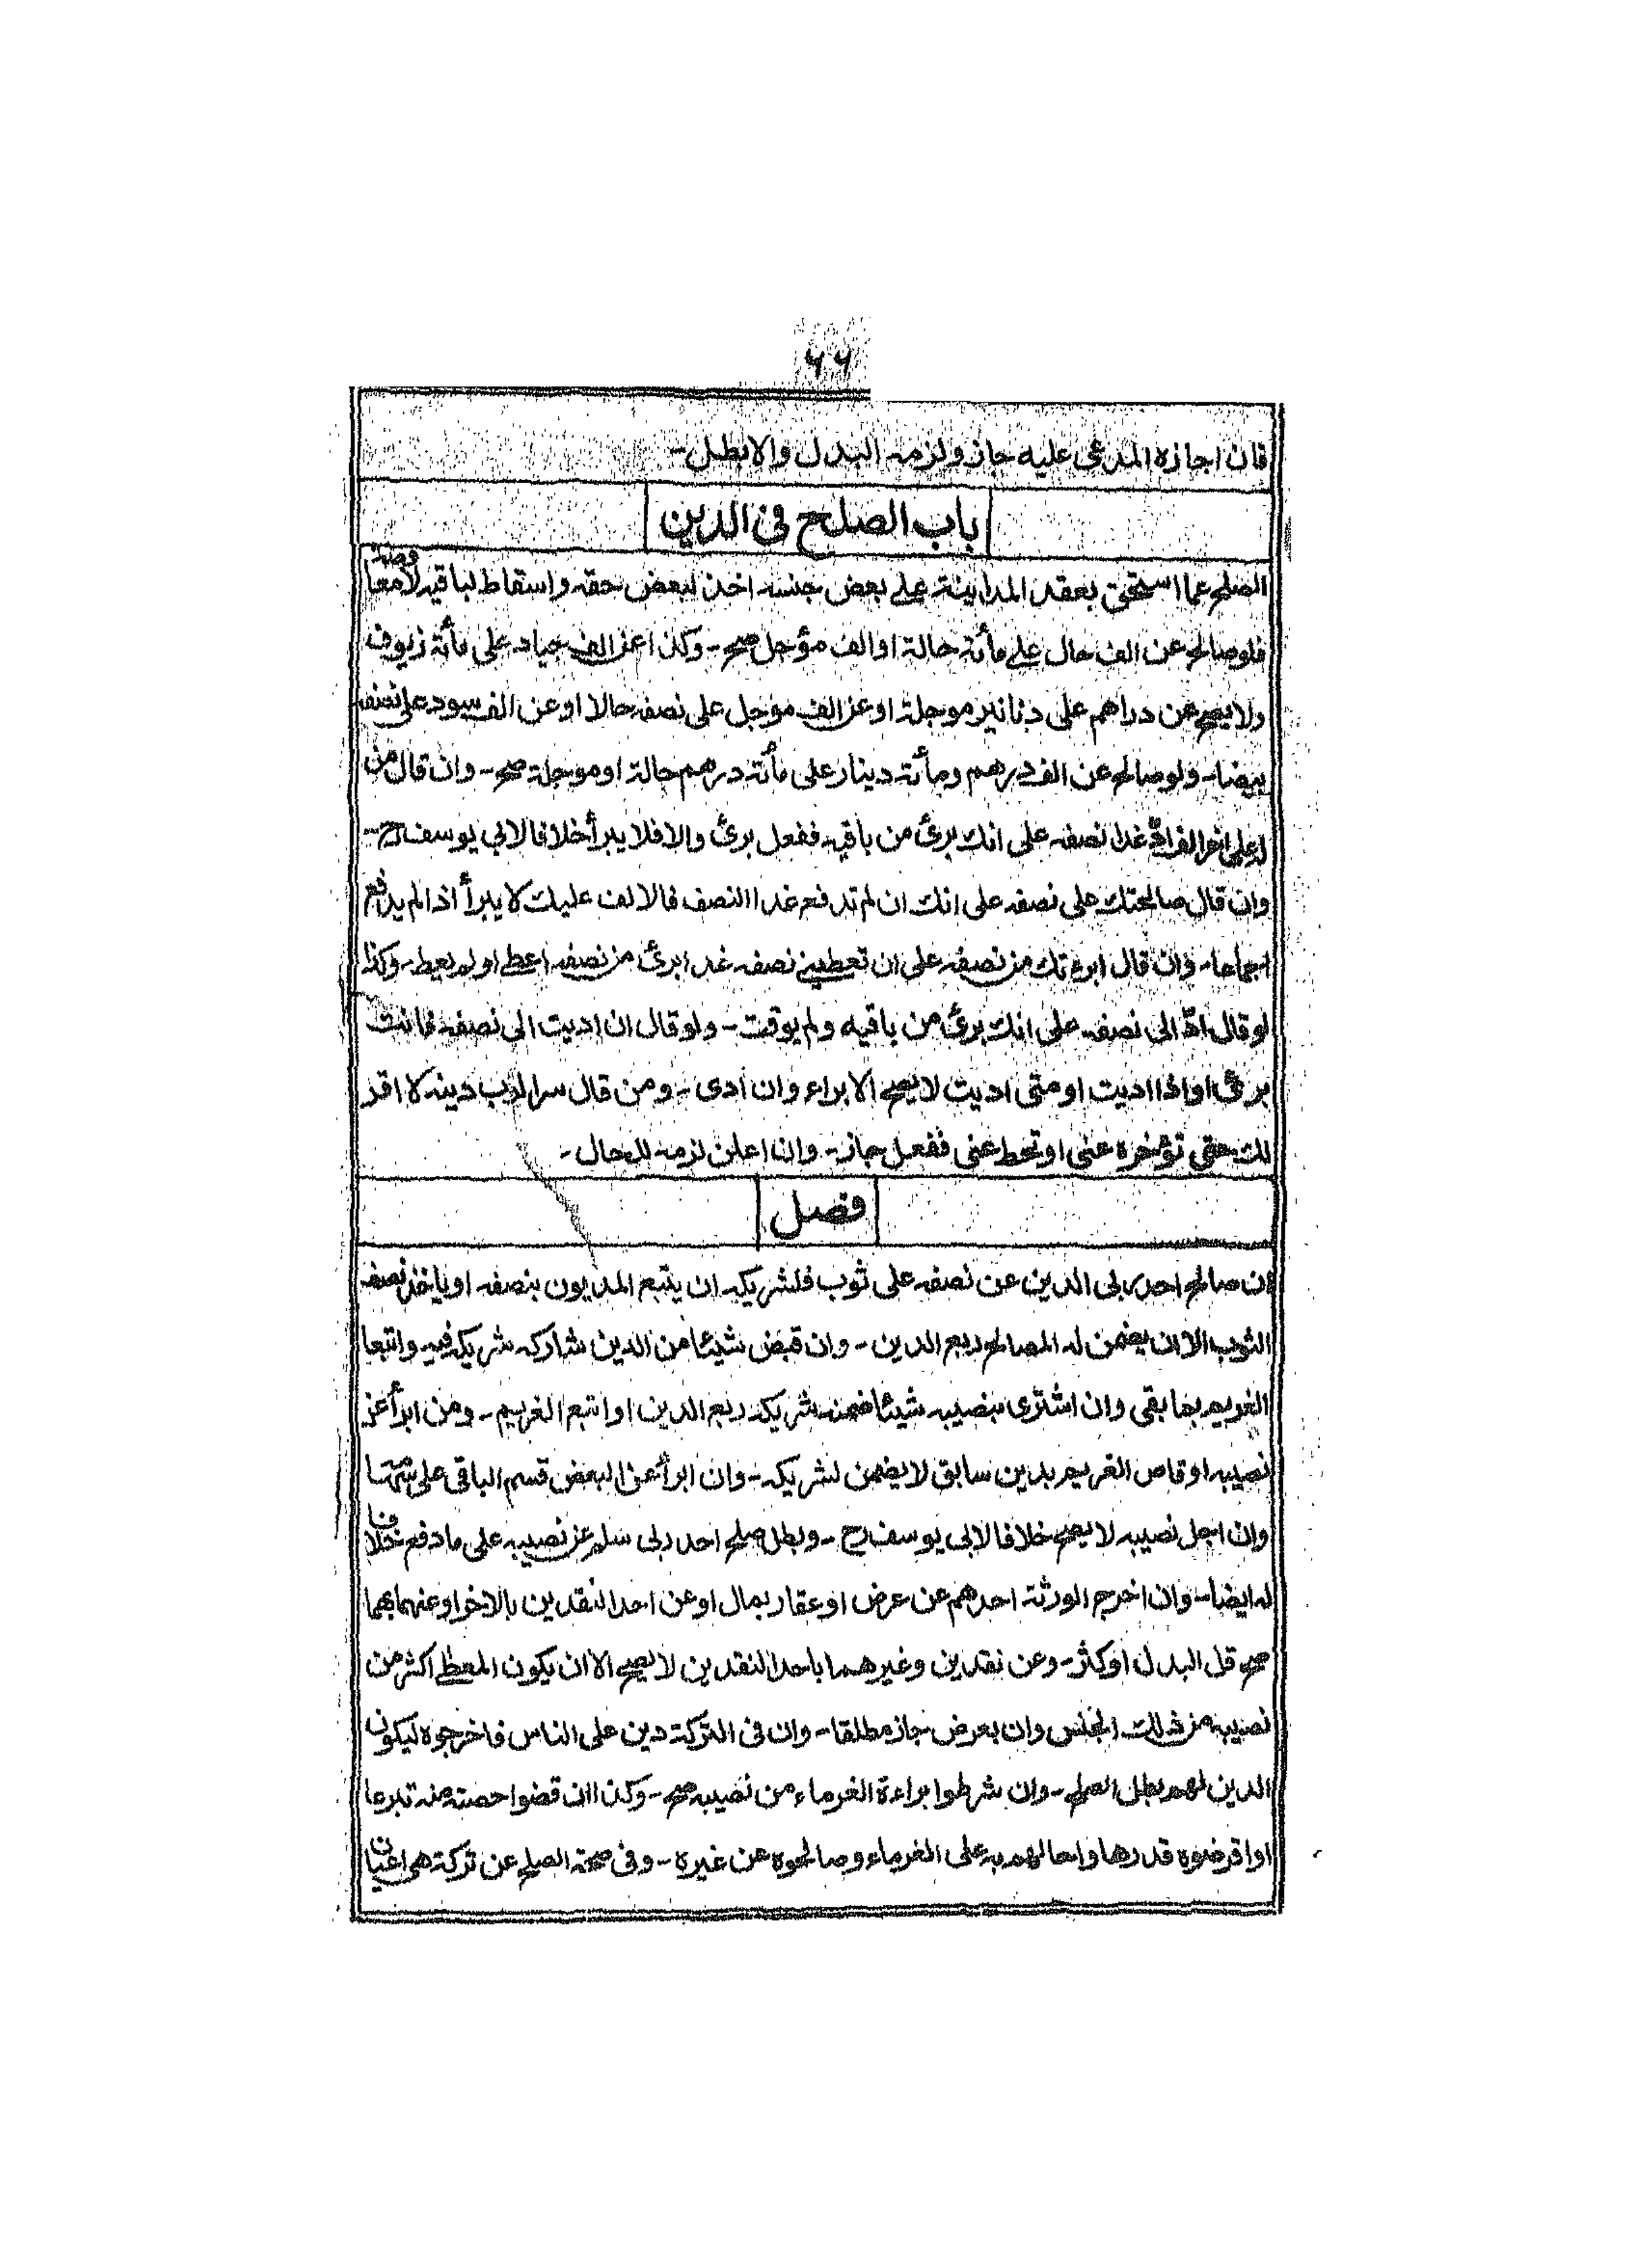 ٦٦
فان اجازه المدعى عليه جاز ولزمه البدل والابطل-
باب الصلح فى الدين
الصلح عما استحق بعقد المداينة على بعض جنسه اخذ لبعض حقه واسقاط لباقيه لا معاوضة
فلو صالح عن الف حال على مأئة حالة او الف مؤجل صح- وكذا عن الف جياد على مأئة زيوف
ولا يصح عن دراهم على دنانير موجلة او عن الف مؤجل على نصفه حالا او عن الف سود على نصف
بيضا- ولو صالح عن الف درهم ومأئة دينار على مأئة درهم حالة او موجلة صح- وان قال من
له على اخر الف اد غدا نصفه على انك برئ من باقيه ففعل برئ والا فلا يبرأ خلافا لابى يوسف رح-
وان قال صالحتك على نصفه على انك ان لم تدفع غدا النصف فالالف عليك لا يبرأ اذا لم يدفع
اجماعا- وان قال ابرءتك من نصفه على ان تعطينى نصفه غدا برئ من نصفه اعطى او لم يعط- وكذا
لو قال اد الى نصفه على انك برئ من باقيه ولم يوقت- ولو قال ان اديت الى نصفه فانت
برئ او اذا اديت او متى اديت لا يصح الابراء وان ادى- ومن قال سرا لرب دينه لا اقر
لك حتى تؤخره عنى او تحط عنى ففعل جاز- وان اعلن لزمه للحال-
فصل
ان صالح احد ربى الدين عن نصفه على ثوب فلشريكه ان يتبع المديون بنصفه او ياخذ نصف
الثوب الا ان يضمن له المصالح ربع الدين- وان قبض شيئا من الدين شاركه شريكه فيه واتبعا
الغريم بما بقى وان اشترى بنصيبه شيئا ضمنه شريكه ربع الدين او اتبع الغريم- ومن ابرأ عن
نصيبه او قاص الغريم بدين سابق لا يضمن لشريكه- وان ابرأ عن البعض قسم الباقى على
وان اجل نصيبه لا يصح خلافا لابى يوسف رح- وبطل صلح احد ربى سلم عن نصيبه على ما دفع خلافا
له ايضا- وان اخرج الورثة احدهم عن عرض او عقار بمال او عن احد النقدين بالاخر او عنهما بهما
صح قل البدل او كثر- وعن نقدين وغيرهما باحد النقدين لا يصح الا ان يكون المعطى اكثر من
نصيبه من ذلك الجنس وان بعرض جاز مطلقا- وان فى التركة دين على الناس فاخرجوه ليكون
الدين لهم بطل الصلح- وان شرطوا براءة الغرماء من نصيبه صح- وكذا ان قضوا حصته منه تبرعا
او اقرضوه قدرها واحالهم به على الغرماء وصالحوه عن غيره- وفى صحة الصلح عن تركة هى اعيان